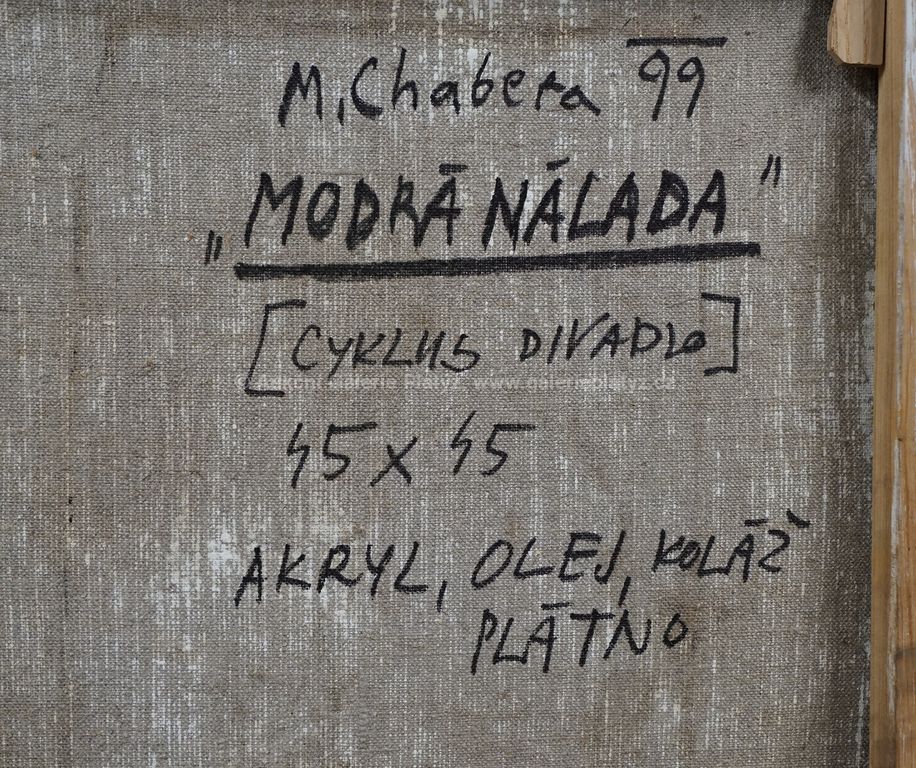 M. Chabera 99
„MODRÁ NÁLADA"
[CYKLUS DIVADLO]
Galerie Platýz www.galerieplatyz.cz
45 x 45
AKRYL, OLEJ, KOLÁŽ
PLÁTNO